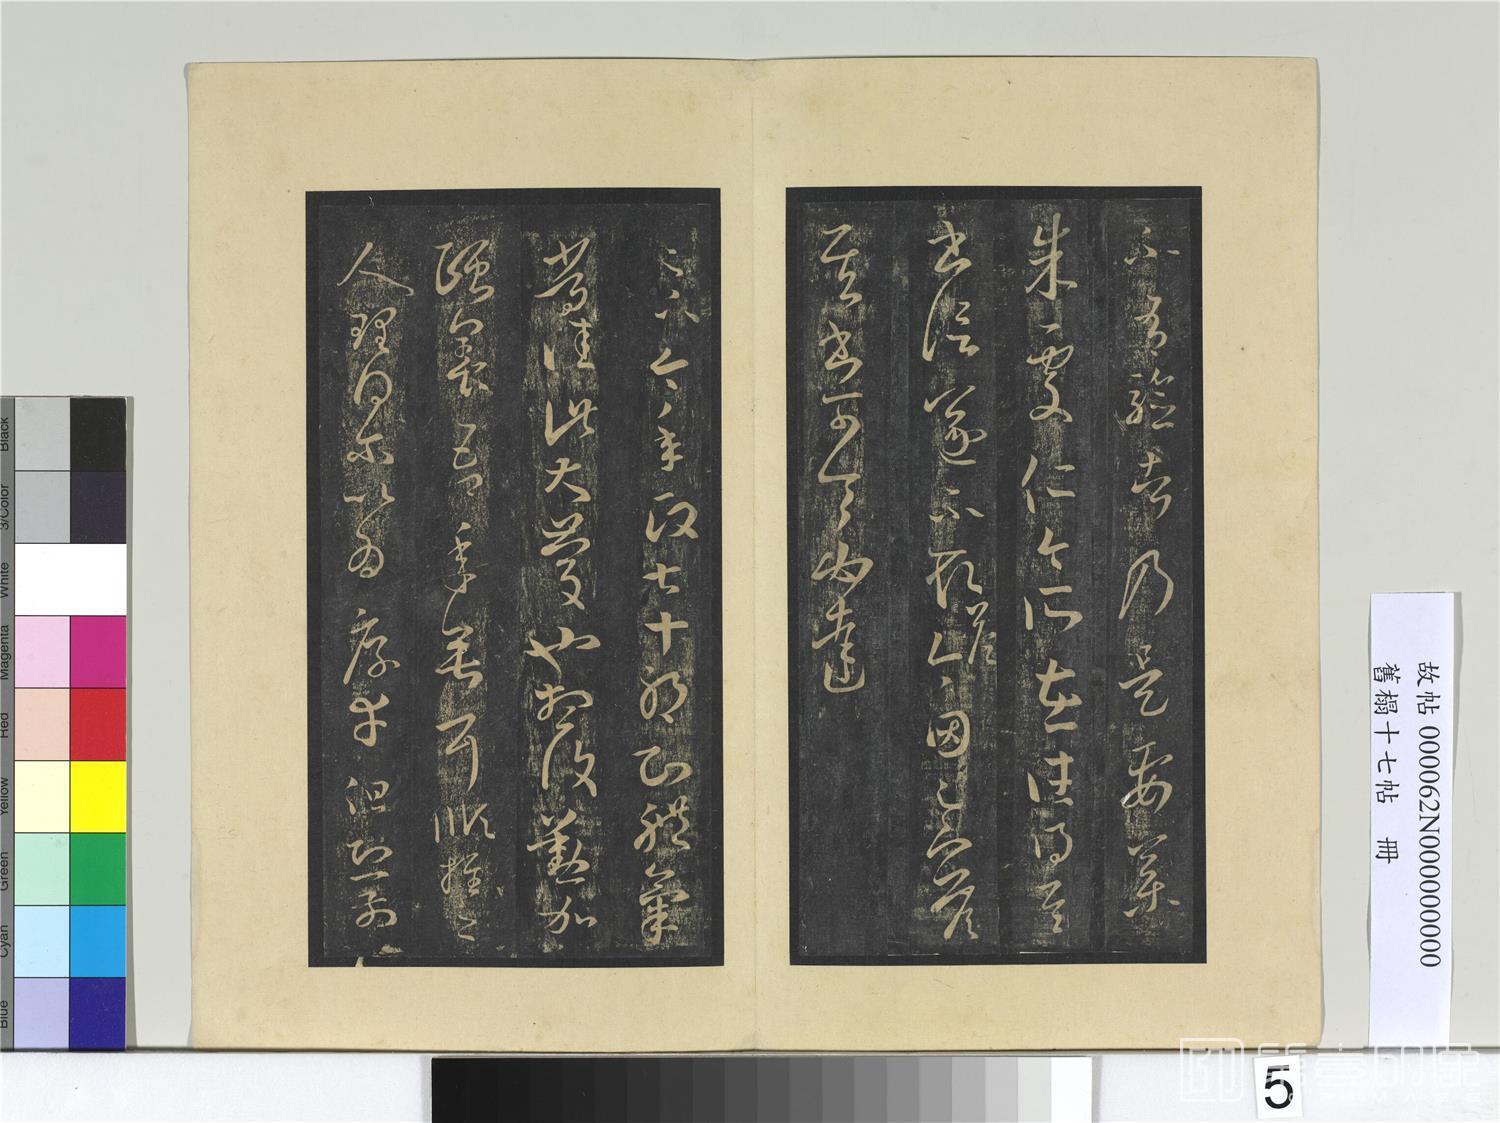 不有驗者乃是要藥
朱處仁今所在往得其
書信遂不取答今因足下答
其書可令必達
足下今年政七十耶知體氣
常佳此大慶也想復勤加
頤養吾年垂耳順推之
人理得爾以為厚幸但恐前
故帖 000062N000000000
舊榻十七帖 冊
Black
3/Color
White
Magenta
Red
Yellow
Green
Cyan
Blue
5